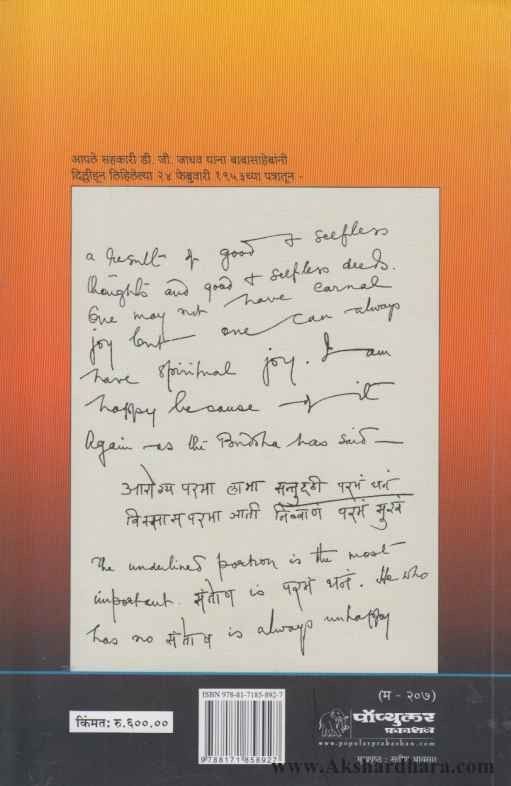 आपले सहकारी डी. जी. जाधव यांना बाबासाहेबांनी
दिल्लीहून लिहिलेल्या २४ फेब्रुवारी १९५३च्या पत्रातून -
a result of good & selfless
thoughts and good & selfless deeds.
One may not have carnal
joy but one can always
have spiritual joy. I am
happy because of it
Again as the Buddha has said —
आरोग्य परमा लाभा सन्तुट्ठी परमं धनं
विस्सास परमा ञाती निब्बाणं परमं सुखं
The underlined portion is the most
important. संतोष is परमं धनं. He who
has no संतोष is always unhappy
किंमत: रु.६००.००
ISBN 978-81-7185-892-7
9788171858927
(म - २०७)
पॉप्युलर
प्रकाशन
www.popularprakashan.com
मुखपृष्ठ : सतीश भावसार
www.Akshardhara.com